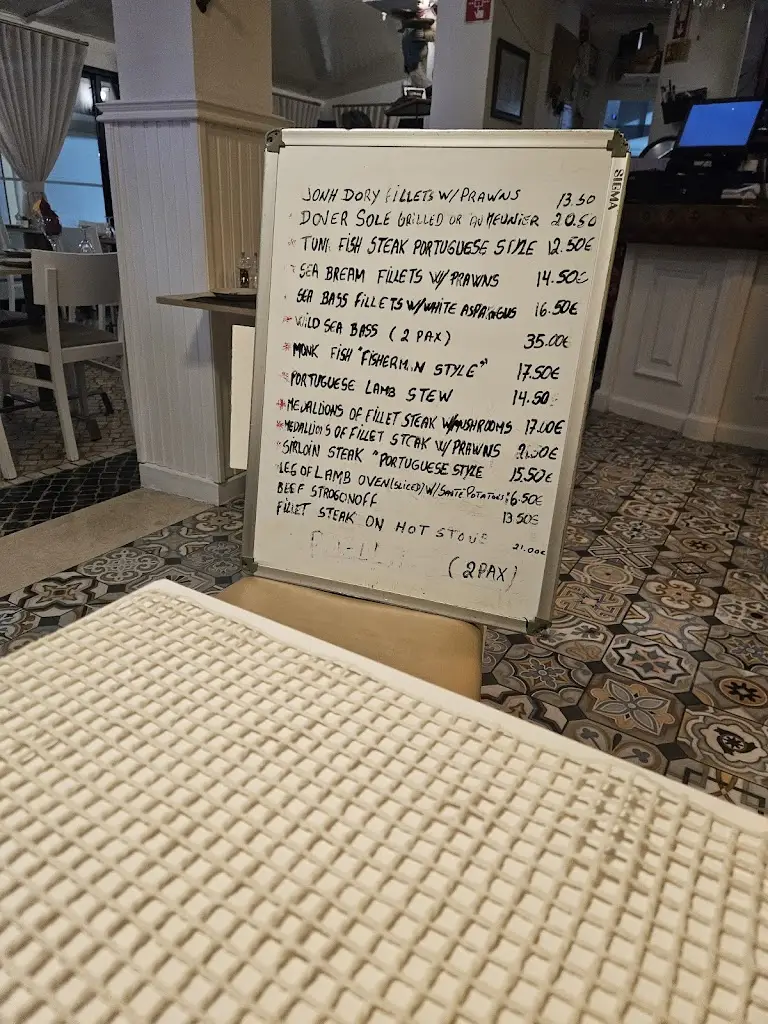 JONH DORY FILLETS W/ PRAWNS 13.50
DOVER SOLE GRILLED OR AU MEUNIER 20.50
TUNA FISH STEAK PORTUGUESE STYLE 12.50€
SEA BREAM FILLETS W/ PRAWNS 14.50€
SEA BASS FILLETS W/ WHITE ASPARAGUS 16.50€
WILD SEA BASS (2 PAX) 35.00€
MONK FISH "FISHERMAN STYLE" 17.50€
PORTUGUESE LAMB STEW 14.50
MEDALLIONS OF FILLET STEAK W/MUSHROOMS 17.00€
MEDALLIONS OF FILLET STEAK W/ PRAWNS
SIRLOIN STEAK "PORTUGUESE STYLE 15.50€
LEG OF LAMB OVEN (SLICED) W/ SAUTÉ POTATOES 16.50€
BEEF STROGONOFF 13.50€
FILLET STEAK ON HOT STOUE 21.00€
(2 PAX)
SIGMA